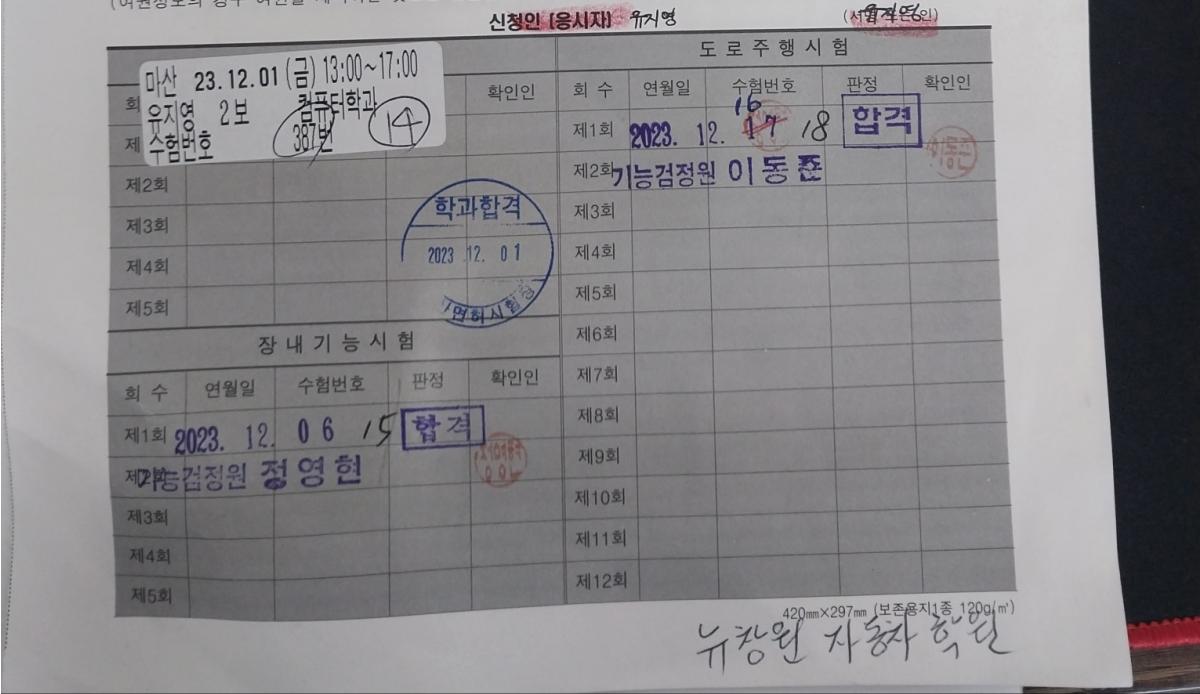 신청인 [응시자] 유지영
마산 23.12.01 (금) 13:00~17:00
유지영 2보 컴퓨터학과
수험번호 387번 14
확인인
제2회
제3회
제4회
제5회
학과합격
2023 .12. 01
면허시험
장내기능시험
회 수 연월일 수험번호 판정 확인인
제1회 2023. 12. 06 15 합격
기능검정원 정영현
제3회
제4회
제5회
도로주행시험
회 수 연월일 수험번호 판정 확인인
16
제1회 2023. 12. 17 18 합격
제2회 기능검정원 이동준
이동준
제3회
제4회
제5회
제6회
제7회
제8회
제9회
제10회
제11회
제12회
420㎜×297㎜ (보존용지1종 120g/㎡)
뉴창원 자동차 학원